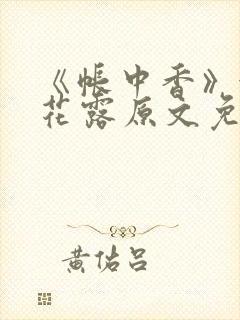 《帳中香》
花露原文免
黄佑吕